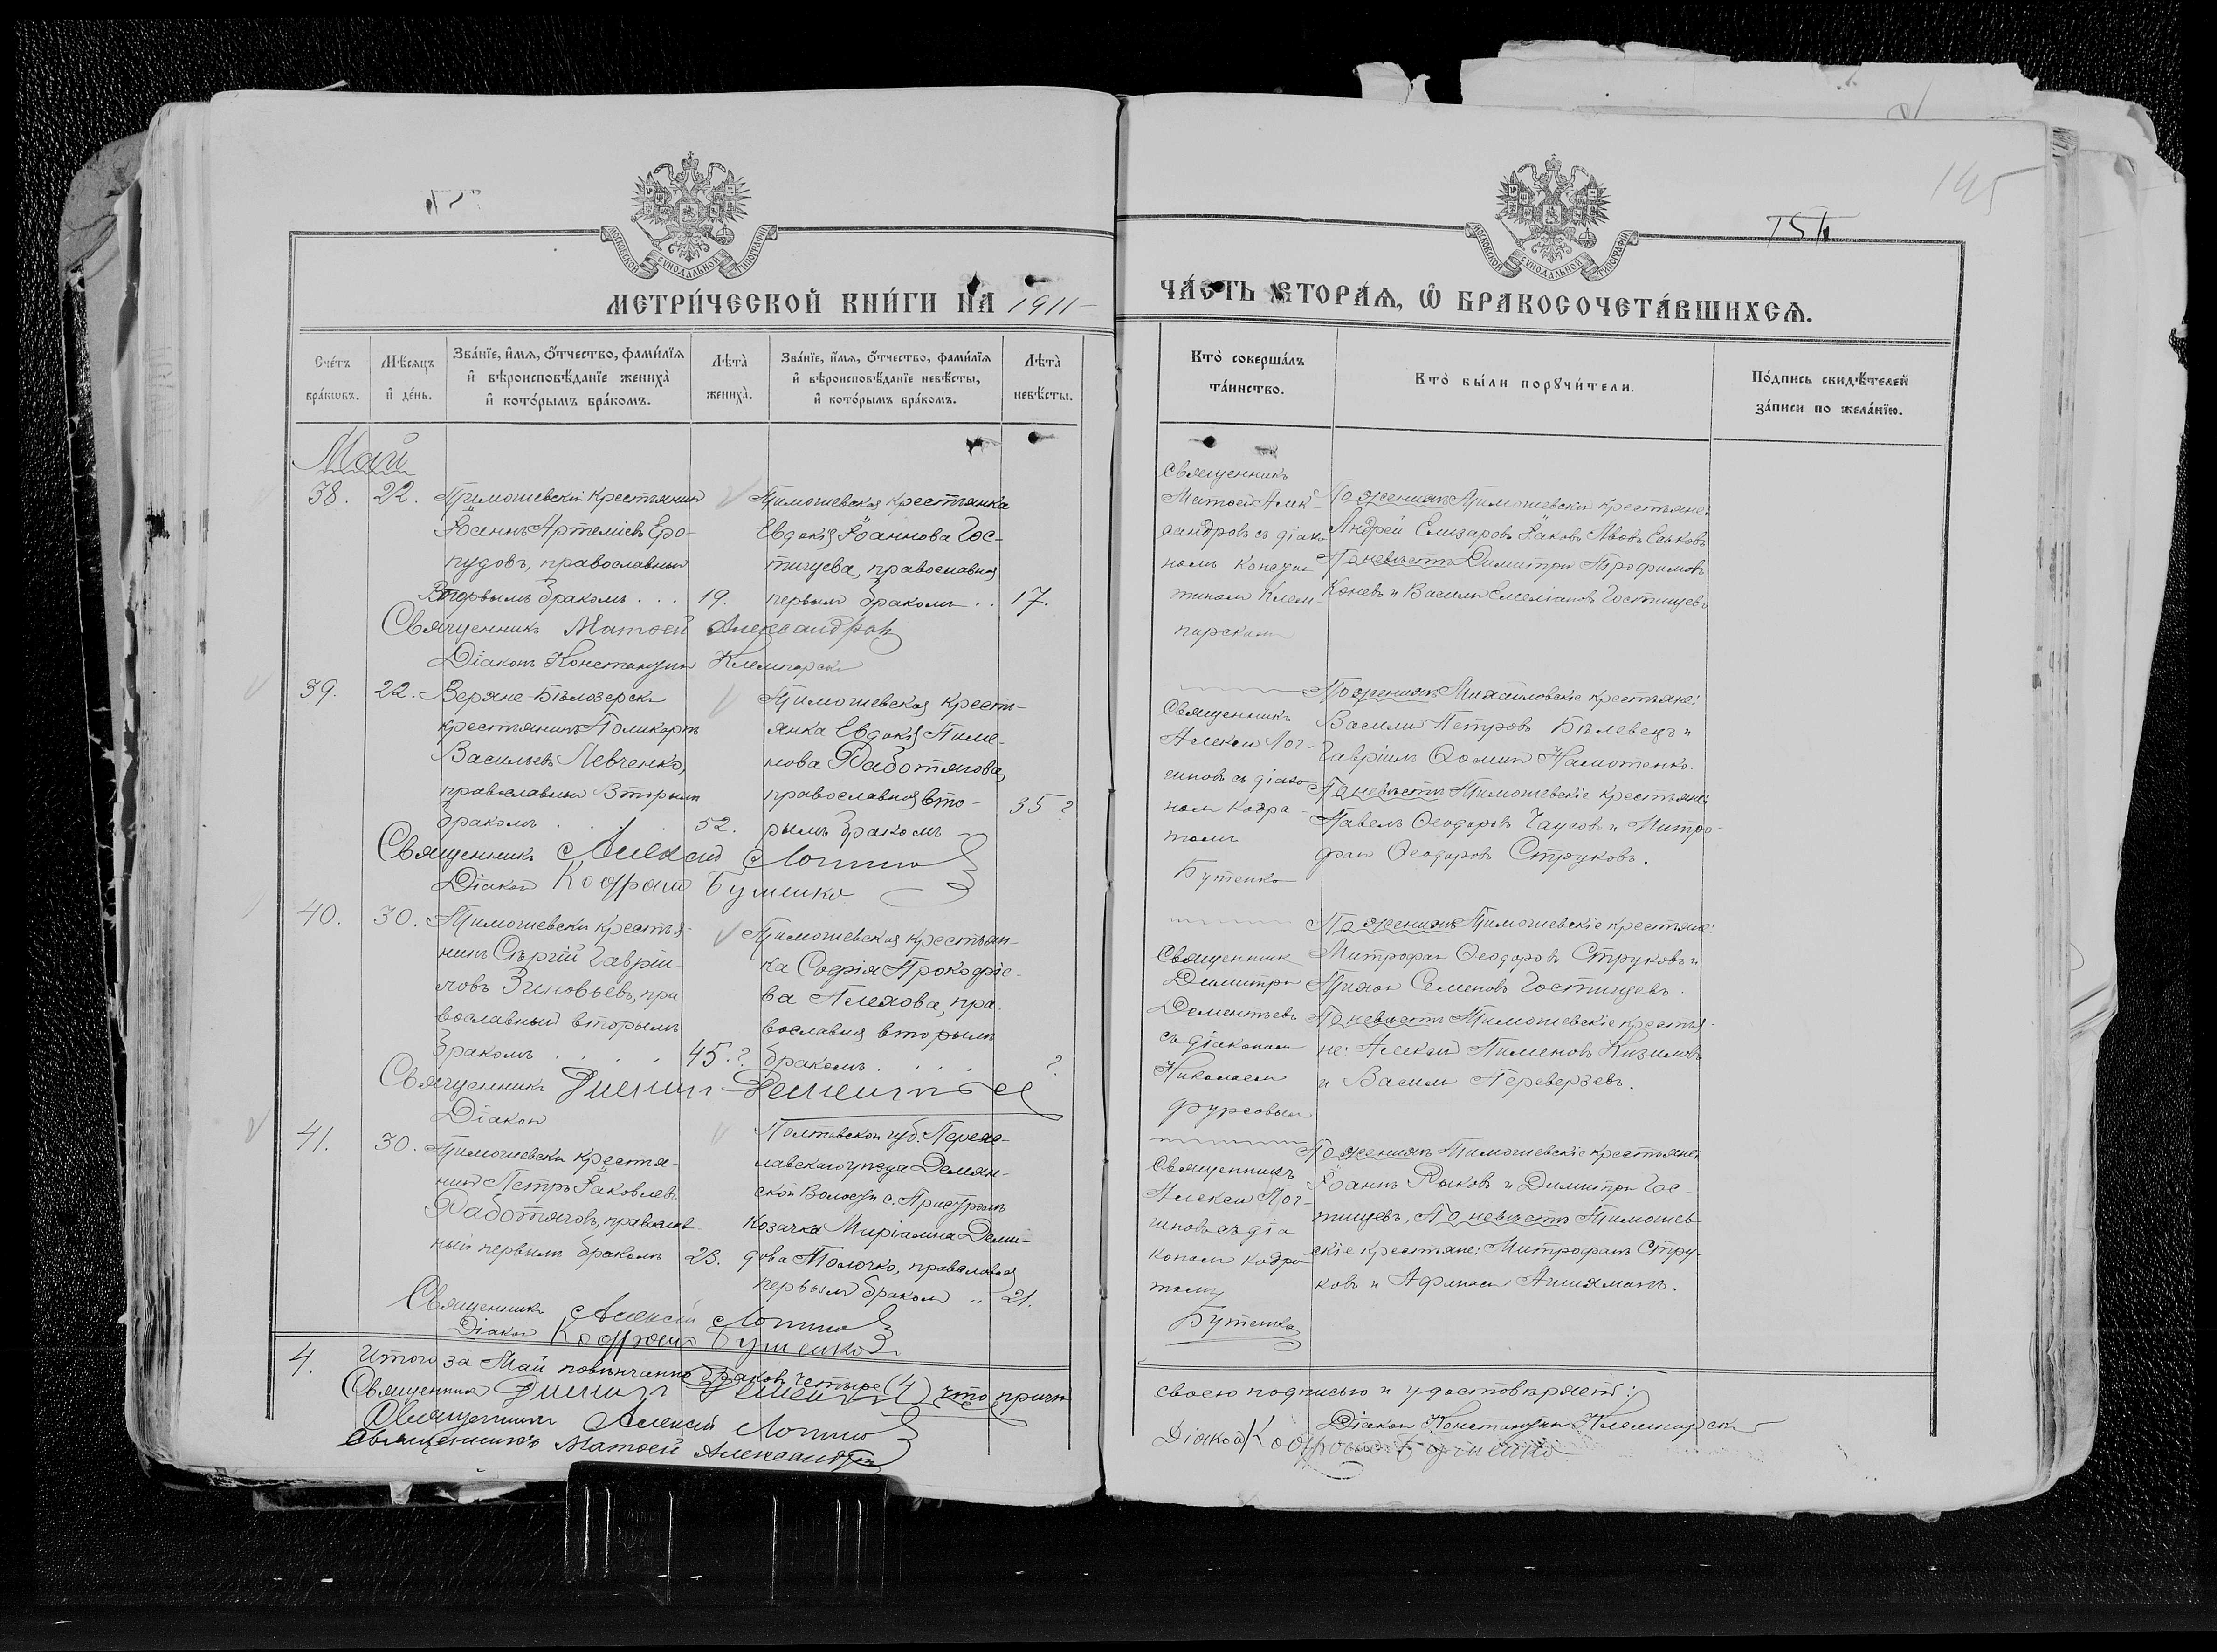 145
МОСКОВСКОЙ СѴНОДАЛЬНОЙ ТИПОГРАФІИ
МЕТРИ́ЧЕСКОЙ КНИ́ГИ НА 1911
Сче́тъ бра́ковъ.
Мѣ́сяцъ и҆ де́нь.
Зва́нїе, и҆́мѧ, ѻ҆́тчество, фами́лїѧ
и҆ вѣроисповѣ́данїе жениха̀
и҆ кото́рымъ бра́комъ.
Лѣ́та̀ жениха̀.
Зва́нїе, и҆́мѧ, ѻ҆́тчество, фами́лїѧ
и҆ вѣроисповѣ́данїе невѣ́сты,
и҆ кото́рымъ бра́комъ.
Лѣ́та̀ невѣ́сты.
Май
38. 22. Тимошевскій крестьянинъ
Іоаннъ Артеміевъ Еро-
пудовъ, православный
бракомъ . . . 19.
Тимошевская крестьянка
Евдокія Іоаннова Гос-
тищева, православная
первымъ бракомъ . . 17.
Священникъ Матѳей Александровъ
Діаконъ Константинъ Клемпарскій
39. 22. Верхне-Бѣлозерскій
крестьянинъ Поликарпъ
Васильевъ Левченко,
православный вторымъ
бракомъ . . . 52.
Тимошевская кресть-
янка Евдокія Пиме-
нова Работягова,
православная вто-
рымъ бракомъ 35?
Священникъ Алексій Логиновъ
Діаконъ Кодратъ Бутенко
40. 30. Тимошевскій крестья-
нинъ Сергій Гаврии-
ловъ Зиновьевъ, пра
вославный вторымъ
бракомъ . . . . 45.?
Тимошевская крестьян-
ка Софія Прокофіе-
ва Алехова, пра-
вославная вторымъ
бракомъ . . . . ?
Священникъ Димитрій Дементьевъ
Діаконъ
41. 30. Тимошевскій крестья-
нинъ Петръ Іаковлевъ
Работяговъ, православ-
ный первымъ бракомъ 23.
Полтавской губ. Переяс-
лавскаго уѣзда Демян-
ской Волости с.
Козачка Миріамна Деми-
дова Толочко, православная
первымъ бракомъ .. 21.
Священникъ Алексій Логиновъ
Діаконъ Кодратъ Бутенко
4. Итого за Май повѣнчанно браковъ четыре (4) что причтъ
Священникъ Димитрій Дементьевъ
Священникъ Алексій Логиновъ
Священникъ Матѳей Александровъ
МОСКОВСКОЙ СѴНОДАЛЬНОЙ ТИПОГРАФІИ
ЧА́СТЬ ВТОРА́Ѧ, Ѽ БРАКОСОЧЕТА́ВШИХСѦ.
Кто̀ соверша́лъ
та́инство.
Кто̀ бы́ли порꙋчи́тели.
По́дпись свидѣ́телей
за́писи по жела́нїю.
Священникъ
Матѳей Алек-
сандровъ съ діако-
номъ Констан-
тиномъ Клем-
парскимъ
По женихѣ Тимошевскіи крестьяне:
Андрей Елизаровъ Іаковъ Львовъ Еськовъ
По невѣстѣ Димитрій Трофимовъ
Коневъ и Василій Емеліановъ Гостищевъ
Священникъ
Алексій Лог-
иновъ съ діако-
номъ Кодра-
томъ
Бутенко
По женихѣ Михайловскіе крестьяне:
Василій Петровъ Бѣлевецъ и
Гавріилъ Ѳоминъ
По невѣстѣ Тимошевскіе крестьяне:
Павелъ Ѳеодоровъ Чаусовъ и Митро-
фанъ Ѳеодоровъ Струковъ.
Священникъ
Димитрій
Дементьевъ
съ діакономъ
Николаемъ
Фурсовымъ
По женихѣ Тимошевскіе крестьяне:
Митрофанъ Ѳеодоровъ Струковъ и
Тихонъ Семеновъ Гостищевъ.
По невѣстѣ Тимошевскіе крестья-
не: Алексій Пименовъ Кизиловъ
и Василій Переверзевъ.
Священникъ
Алексій Лог-
иновъ съ діа
кономъ Кодра
томъ
Бутенко
По женихѣ Тимошевскіе крестьяне:
Іоаннъ Рыковъ и Димитрій Гос-
тищевъ, По невѣстѣ Тимошев-
скіе крестьяне: Митрофанъ Стру-
ковъ и Афанасій
своею подписью и удостовѣряетъ:
Діаконъ Константинъ Клемпарскій
Діаконъ Кодратъ Бутенко